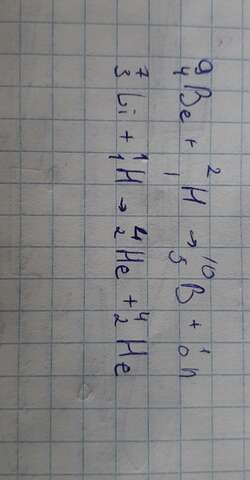 ⁹₄Be + ²₁H → ¹⁰₅B + ¹₀n
⁷₃Li + ¹₁H → ⁴₂He + ⁴₂He